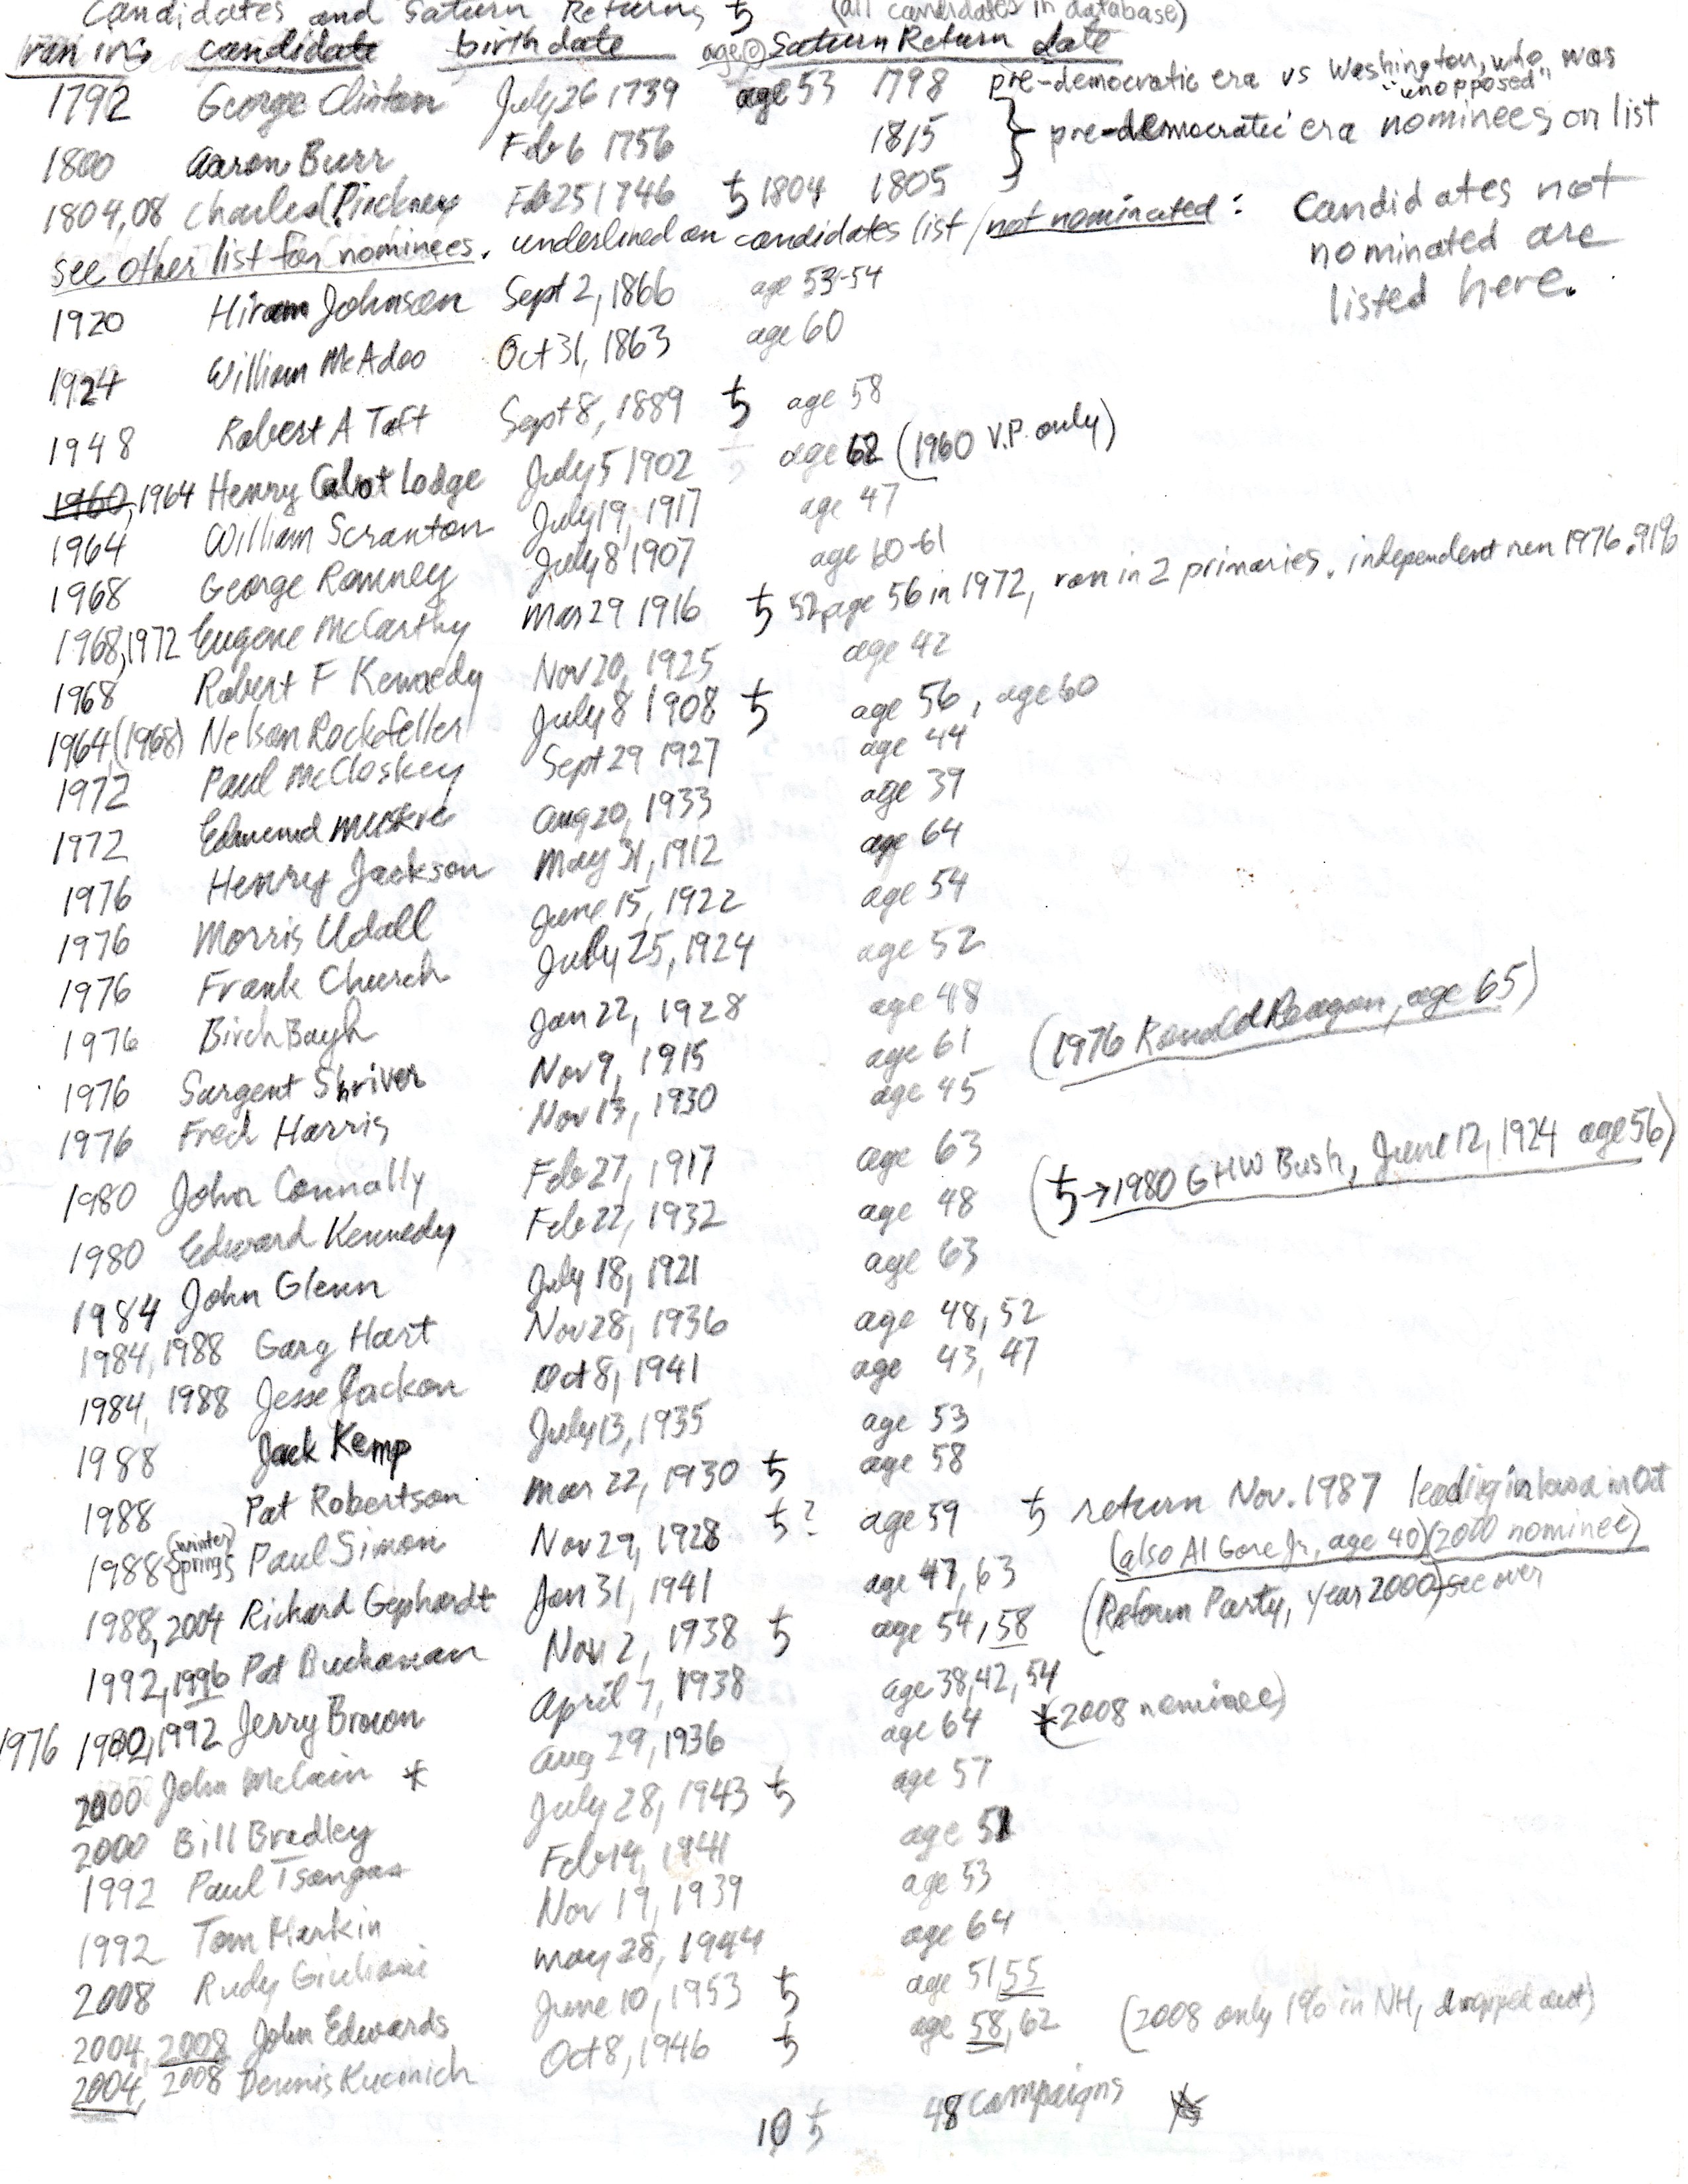 Candidates and Saturn Returns ♄ (all candidates in database)
ran in: candidate birthdate age @ Saturn Return date
1792 George Clinton July 26 1739 age 53 1798 pre-democratic era vs Washington, who was "unopposed"
1800 Aaron Burr Feb 6 1756 1815 } pre-democratic era nominees on list
1804, 08 Charles Pinckney Feb 25 1746 ♄ 1804 1805
see other list for nominees. underlined on candidates list / not nominated: Candidates not nominated are listed here.
1920 Hiram Johnson Sept 2, 1866 age 53-54
1924 William McAdoo Oct 31, 1863 age 60
1948 Robert A Taft Sept 8, 1889 ♄ age 58
1960, 1964 Henry Cabot Lodge July 5 1902 age 62 (1960 V.P. only)
1964 William Scranton July 19, 1917 age 47
1968 George Romney July 8 1907 age 60-61
1968, 1972 Eugene McCarthy Mar 29 1916 ♄ 52, age 56 in 1972, ran in 2 primaries. independent run 1976 .91%
1968 Robert F Kennedy Nov 20, 1925 age 42
1964, (1968) Nelson Rockefeller July 8 1908 ♄ age 56, age 60
1972 Paul McCloskey Sept 29 1927 age 44
1972 Edmund Muskie Aug 20, 1933 age 39
1976 Henry Jackson May 31, 1912 age 64
1976 Morris Udall June 15, 1922 age 54
1976 Frank Church July 25, 1924 age 52
1976 Birch Bayh Jan 22, 1928 age 48
1976 Sargent Shriver Nov 9, 1915 age 61 (1976 Ronald Reagan, age 65)
1976 Fred Harris Nov 13, 1930 age 45
1980 John Connally Feb 27, 1917 age 63
1980 Edward Kennedy Feb 22, 1932 age 48 (♄→1980 GHW Bush, June 12, 1924 age 56)
1984 John Glenn July 18, 1921 age 63
1984, 1988 Gary Hart Nov 28, 1936 age 48, 52
1984, 1988 Jesse Jackson Oct 8, 1941 age 43, 47
1988 Jack Kemp July 13, 1935 age 53
1988 Pat Robertson Mar 22, 1930 ♄ age 58
1988 (winter springs) Paul Simon Nov 29, 1928 ♄? age 59 ♄ return Nov. 1987 leading in Iowa in Oct
(also Al Gore Jr, age 40) (2000 nominee)
1988, 2004 Richard Gephardt Jan 31, 1941 age 47, 63
1992, 1996 Pat Buchanan Nov 2, 1938 ♄ age 54, 58 (Reform Party, year 2000) see over
1976 1980, 1992 Jerry Brown April 7, 1938 age 38, 42, 54
2000 John McCain * Aug 29, 1936 age 64 *(2008 nominee)
2000 Bill Bradley July 28, 1943 ♄ age 57
1992 Paul Tsongas Feb 14, 1941 age 51
1992 Tom Harkin Nov 19, 1939 age 53
2008 Rudy Giuliani May 28, 1944 age 64
2004, 2008 John Edwards June 10, 1953 ♄ age 51, 55
2004, 2008 Dennis Kucinich Oct 8, 1946 ♄ age 58, 62 (2008 only 1% in NH, dropped out)
10 ♄ 48 campaigns